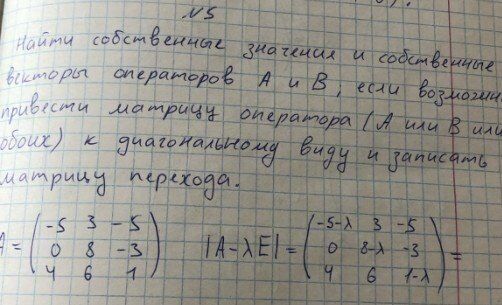 №5
Найти собственные значения и собственные
векторы операторов А и В, если возможн
привести матрицу оператора (А или В или
обоих) к диагональному виду и записать
матрицу перехода.
A = ( -5 3 -5 ) |A-λE| = ( -5-λ 3 -5 ) =
0 8 -3 0 8-λ -3
4 6 1 4 6 1-λ